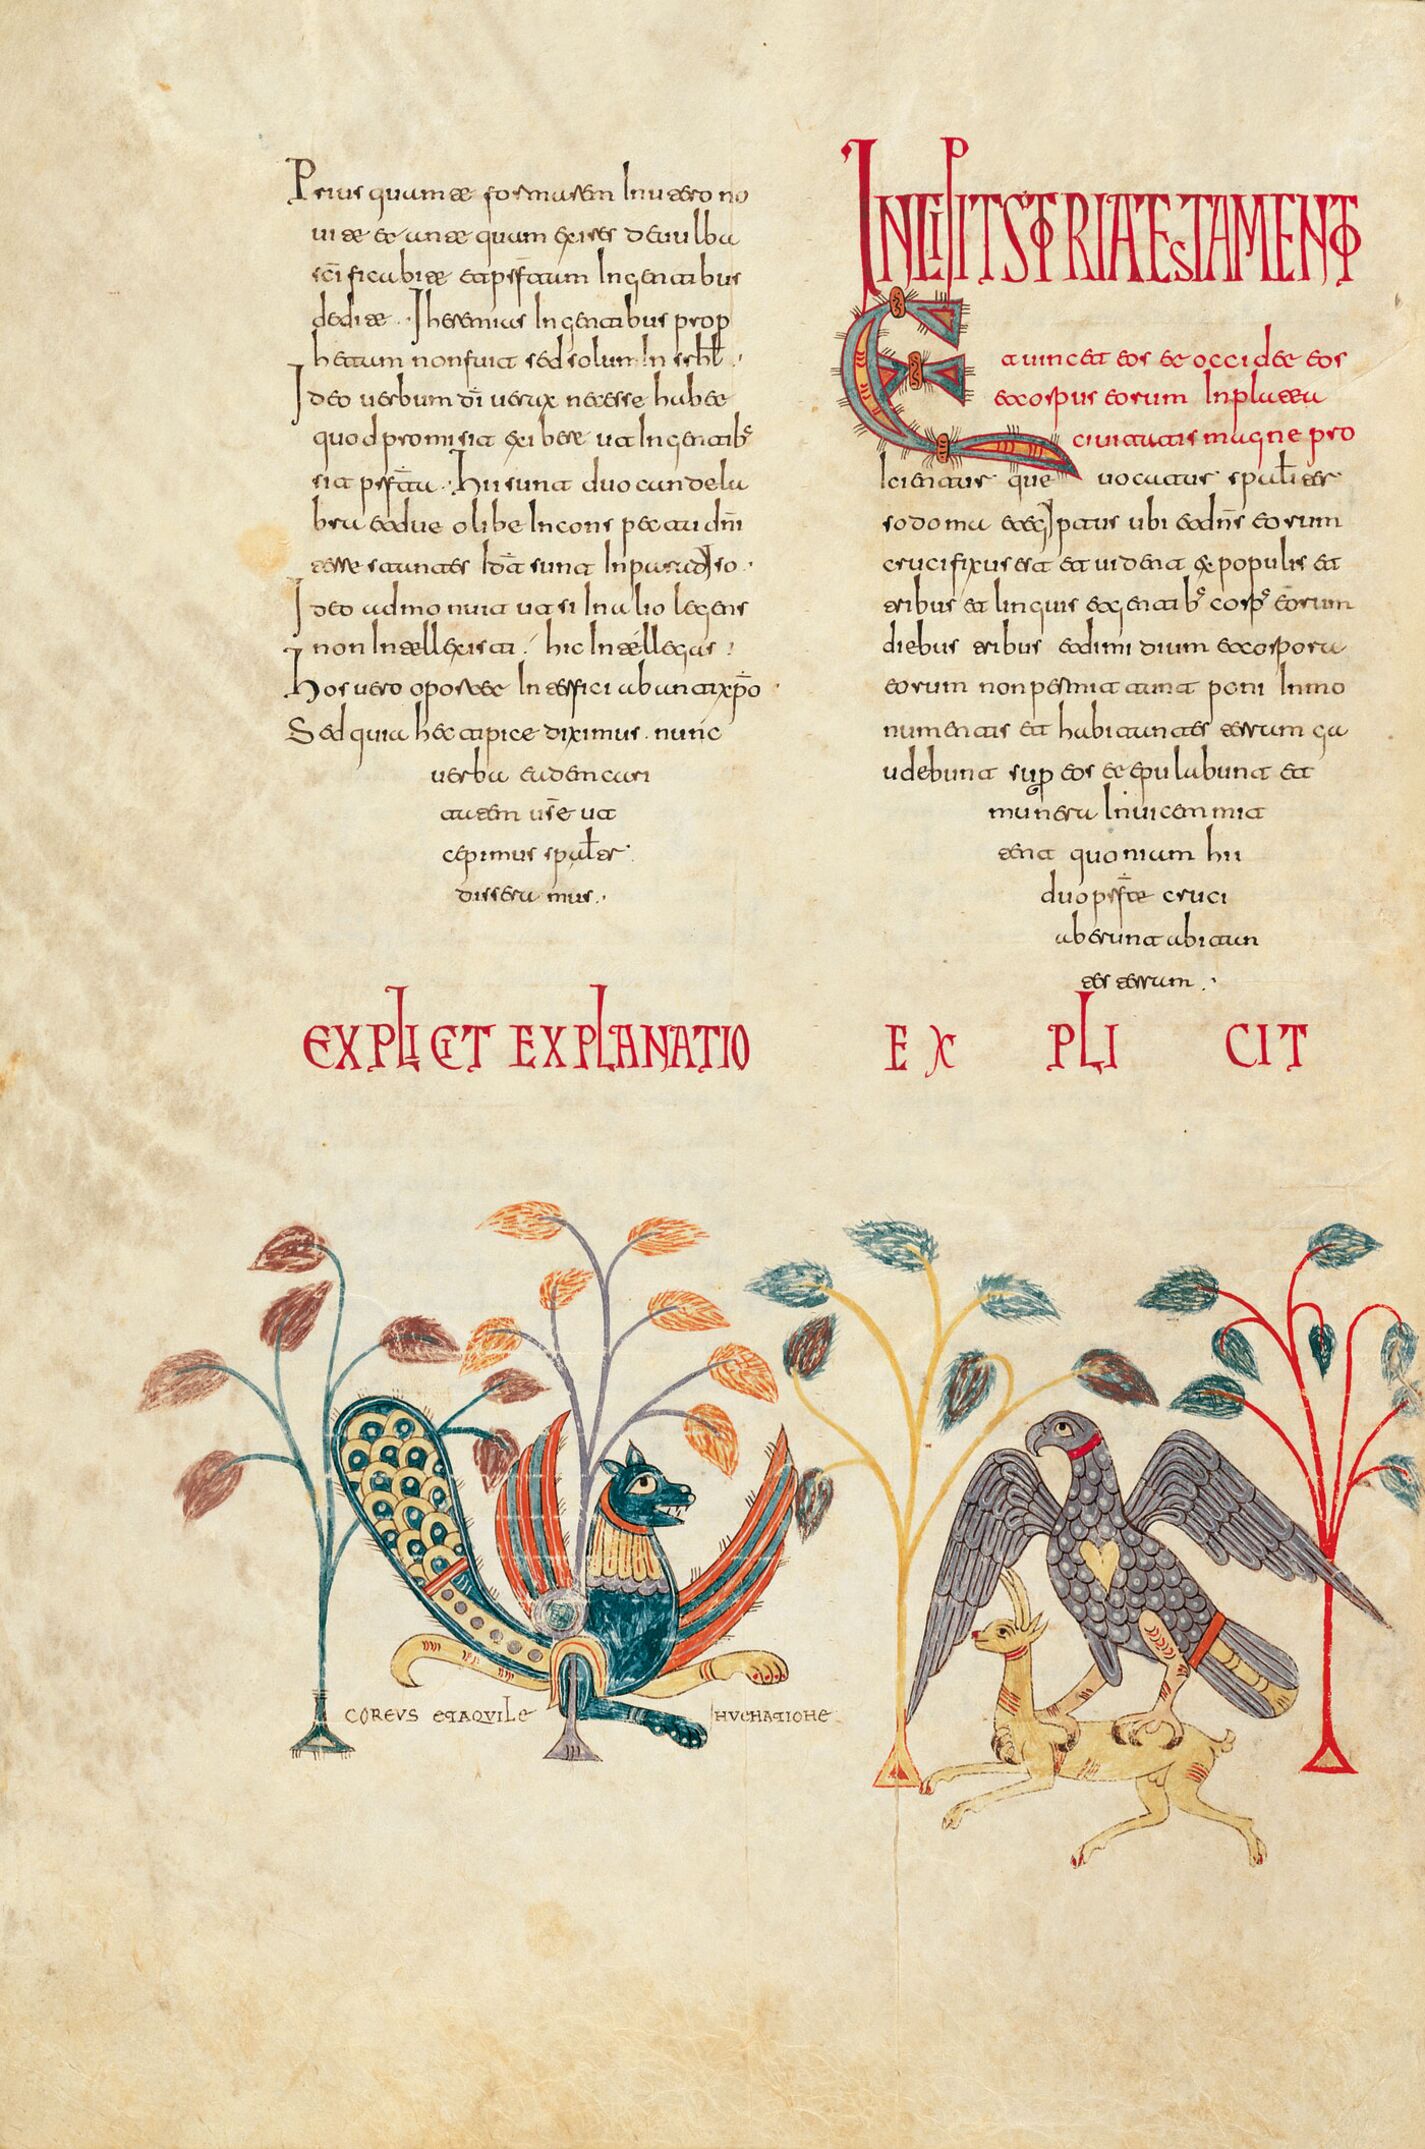 Prius quam te formarem In utero no
ui te et ante quam exires de uulba
scificabi te et pfetam In gentibus
dedi te. Iheremias In gentibus prop
hetam non fuit sed solum In srhl.
Ideo uerbum di uerax necesse habet
quod promisit exibere ut In gentibs
sit pfeta. hii sunt duo candela
bra et due olibe In cons pectu dni
terre stantes Id est sunt In paradiso.
Ideo admonuit ut si In alio legens
non Intellexisti. hic Intellegas.
hos uero oportet Interfici ab antixpo
Sed quia hec apice diximus. nunc
uerba eadem cari
tatem urse ut
cepimus spulter
disseramus.
EXPLICIT EXPLANATIO
INCIPIT STORIA TESTAMENTO
Et uincet eos et occidet eos
et corpus eorum In platea
ciuitatis magne pro
Icietur que uocatur spulter
sodoma et egiptus ubi et dns eorum
crucifixus est et uident ex populis et
tribus et linguis et gentibs corps eorum
diebus tribus et dimidium et corpora
eorum non permittunt poni In mo
numentis et habitantes terram ga
udebunt sup eos et epulabunt et
munera Inuicem mit
tent quoniam hii
duo pfte cruci
aberunt abitan
tes terram.
EX PLI CIT
COREUS ET AQUILE